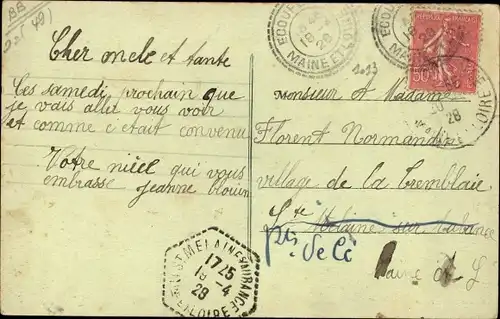 BB
Cher oncle et tante
Ces samedi prochain que
je vais allet vous voir
et comme c etait convenu
Votre nièce qui vous
embrasse jeanne blouin
ECOUFL
MAINE ET
REPUBLIQUE FRANÇAISE
50
28
1.13
Monsieur et Madame
Florent Normandin
village de la Tremblaie
Ste Melaine sur aubance
pts de Cé
Maine et L
ST MELAINE S AUBANCE
17 25
18 - 4
28
LOIRE